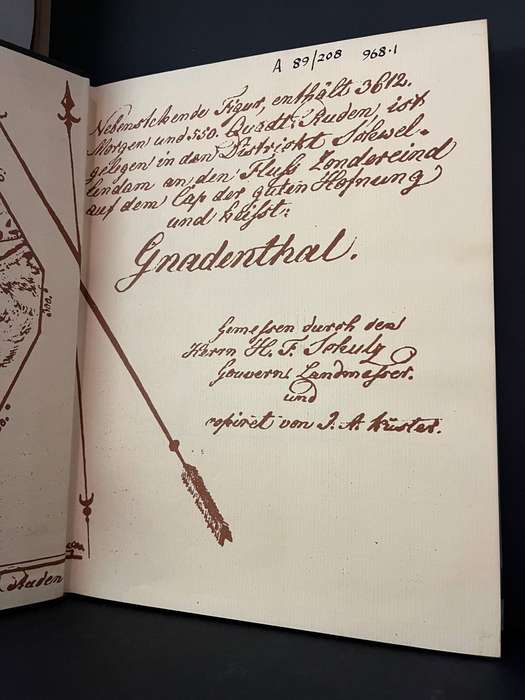 A 89/208 968.1
Nebenstehende Figur, enthält 3612.
Morgen und 550. Quadt: Ruden, ist
gelegen in dan Districkt Schwel-
lendam an den Fluß Zondereind
auf dem Cap der guten Hofnung
und heißt:
Gnadenthal.
Gemeßen durch den
Herrn H. F. Schulz
Gouvern. Landmeßer.
und
copiret von J. A. Küster.
Ruden